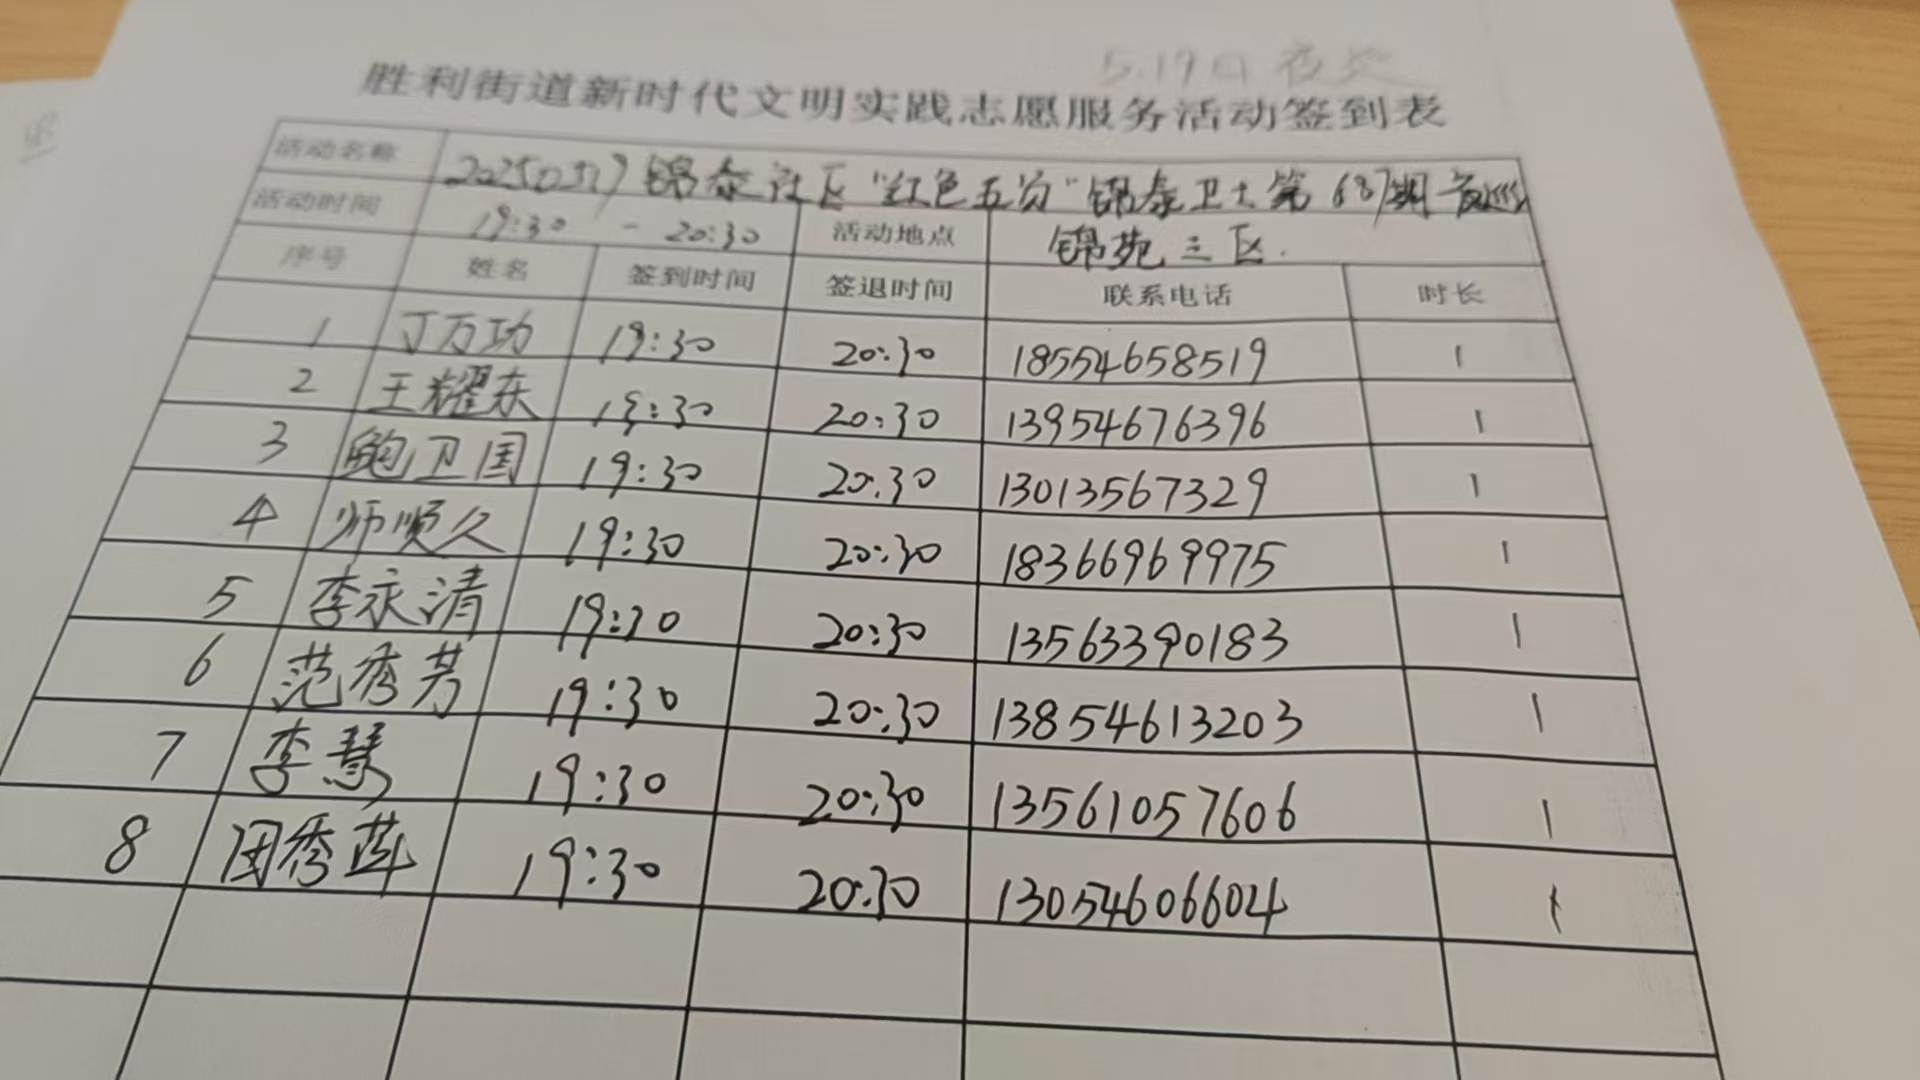 5.19日夜巡
胜利街道新时代文明实践志愿服务活动签到表
活动名称 20250519锦泰社区"红色五员"锦泰卫士第687期夜巡
活动时间 19:30 - 20:30 活动地点 锦苑三区.
序号 姓名 签到时间 签退时间 联系电话 时长
1 丁万功 19:30 20:30 18554658519 1
2 王耀东 19:30 20:30 13954676396 1
3 鲍卫国 19:30 20:30 13013567329 1
4 师顺久 19:30 20:30 18366969975 1
5 李永清 19:30 20:30 13563390183 1
6 范秀芳 19:30 20:30 13854613203 1
7 李慧 19:30 20:30 13561057606 1
8 田秀莲 19:30 20:30 13054606604 1